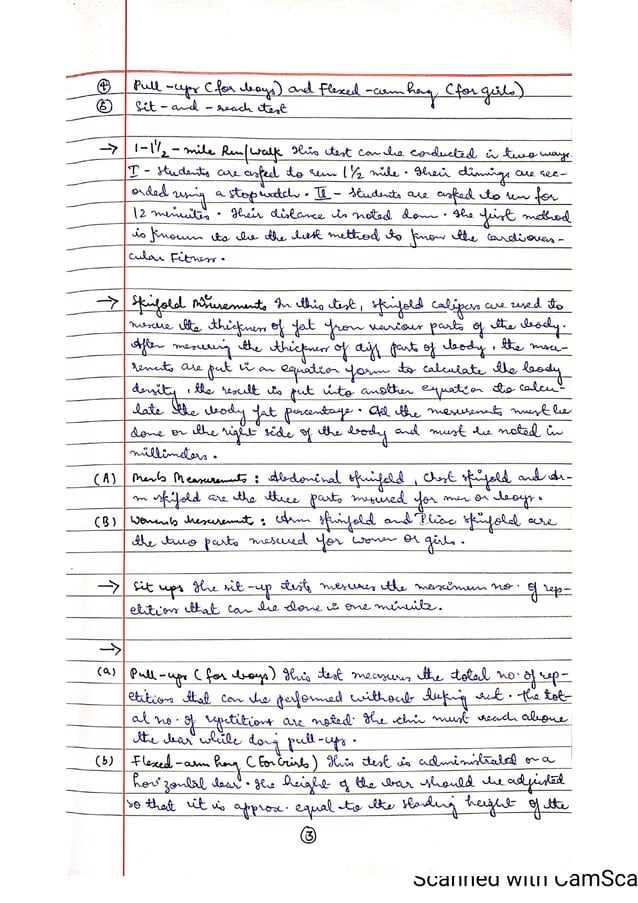 ④ Pull-ups (for boys) and Flexed-arm hang (for girls)
⑤ Sit-and-reach test
→ 1-1½-mile Run/Walk This test can be conducted in two ways.
I - Students are asked to run 1½ mile. Their timings are rec-
orded using a stopwatch. II - Students are asked to run for
12 minutes. Their distance is noted down. The first method
is known to be the best method to know the cardiovas-
cular Fitness.
→ Skinfold Measurements In this test, skinfold calipers are used to
mesure the thickness of fat from various parts of the body.
After mesuring the thickness of diff parts of body, the mesu-
rements are put in an equation form to calculate the body
density, the result is put into another equation to calcu-
late the body fat percentage. All the mesurements must be
done on the right side of the body and must be noted in
millimeters.
(A) Men's Measurements: Abdominal skinfold, chest skinfold and Ar-
m skifold are the three parts mesured for men or boys.
(B) Women's Mesurement: Arm skinfold and Iliac skinfold are
the two parts mesured for women or girls.
→ Sit ups The sit-up tests mesures the maximum no. of rep-
etitions that can be done in one minute.
→
(a) Pull-ups (for boys) This test measures the total no. of rep-
etitions that can be performed without taking rest. The tot-
al no. of repititions are noted. The chin must reach above
the bar while doing pull-ups.
(b) Flexed-arm hang (For Girls) This test is administrated on a
horizontal bar. The height of the bar should be adjusted
so that it is approx. equal to the standing height of the
⑬
Scanned with CamSca